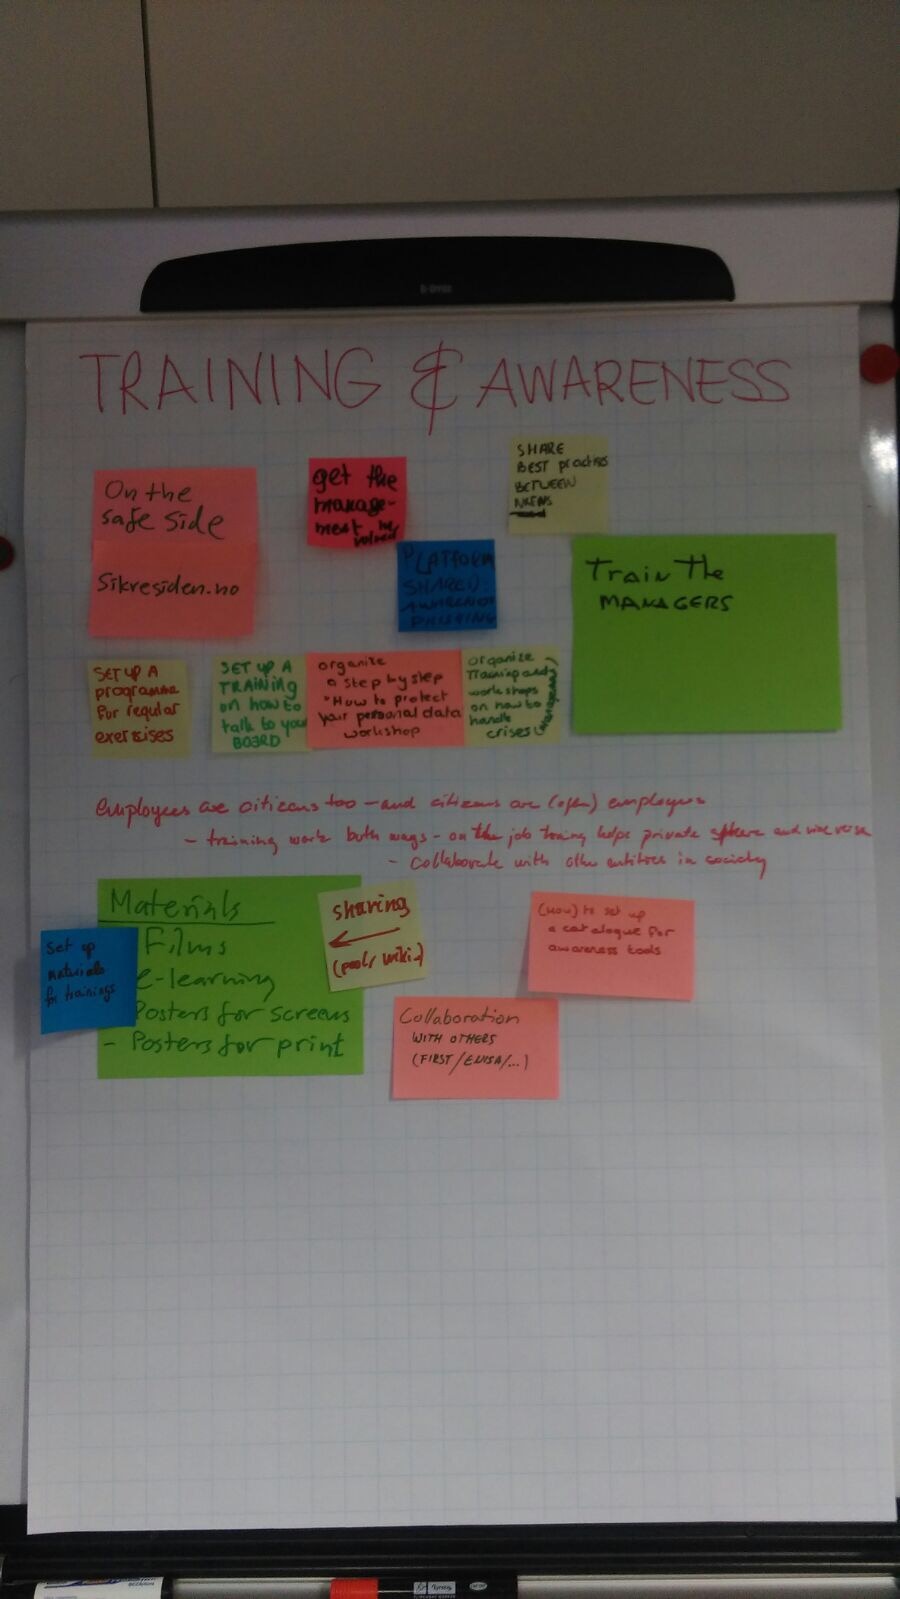 TRAINING & AWARENESS
On the
safe side
Sikresiden.no
get the
manage-
ment in-
volved
SHARE
BEST practises
BETWEEN
NRENs
PLATFORM
SHARED:
AWARENESS
PHISHING
Train The
MANAGERS
SET UP A
programme
for regular
exercises
SET UP A
TRAINING
on how to
talk to your
BOARD
organize
a step by step
"How to protect
your personal data
workshop
organize
Training and
workshops
on how to
handle
crises
(management)
employees are citizens too – and citizens are (often) employees
- training work both ways - on the job training helps private sphere and vice versa
- Collaborate with other entities in society
Materials
Films
e-learning
Posters for screens
- Posters for print
Set up
materials
for trainings
sharing
(pool/wiki..)
(HOW) to set up
a catalogue for
awareness tools
Collaboration
WITH OTHERS
(FIRST/ENISA/...)